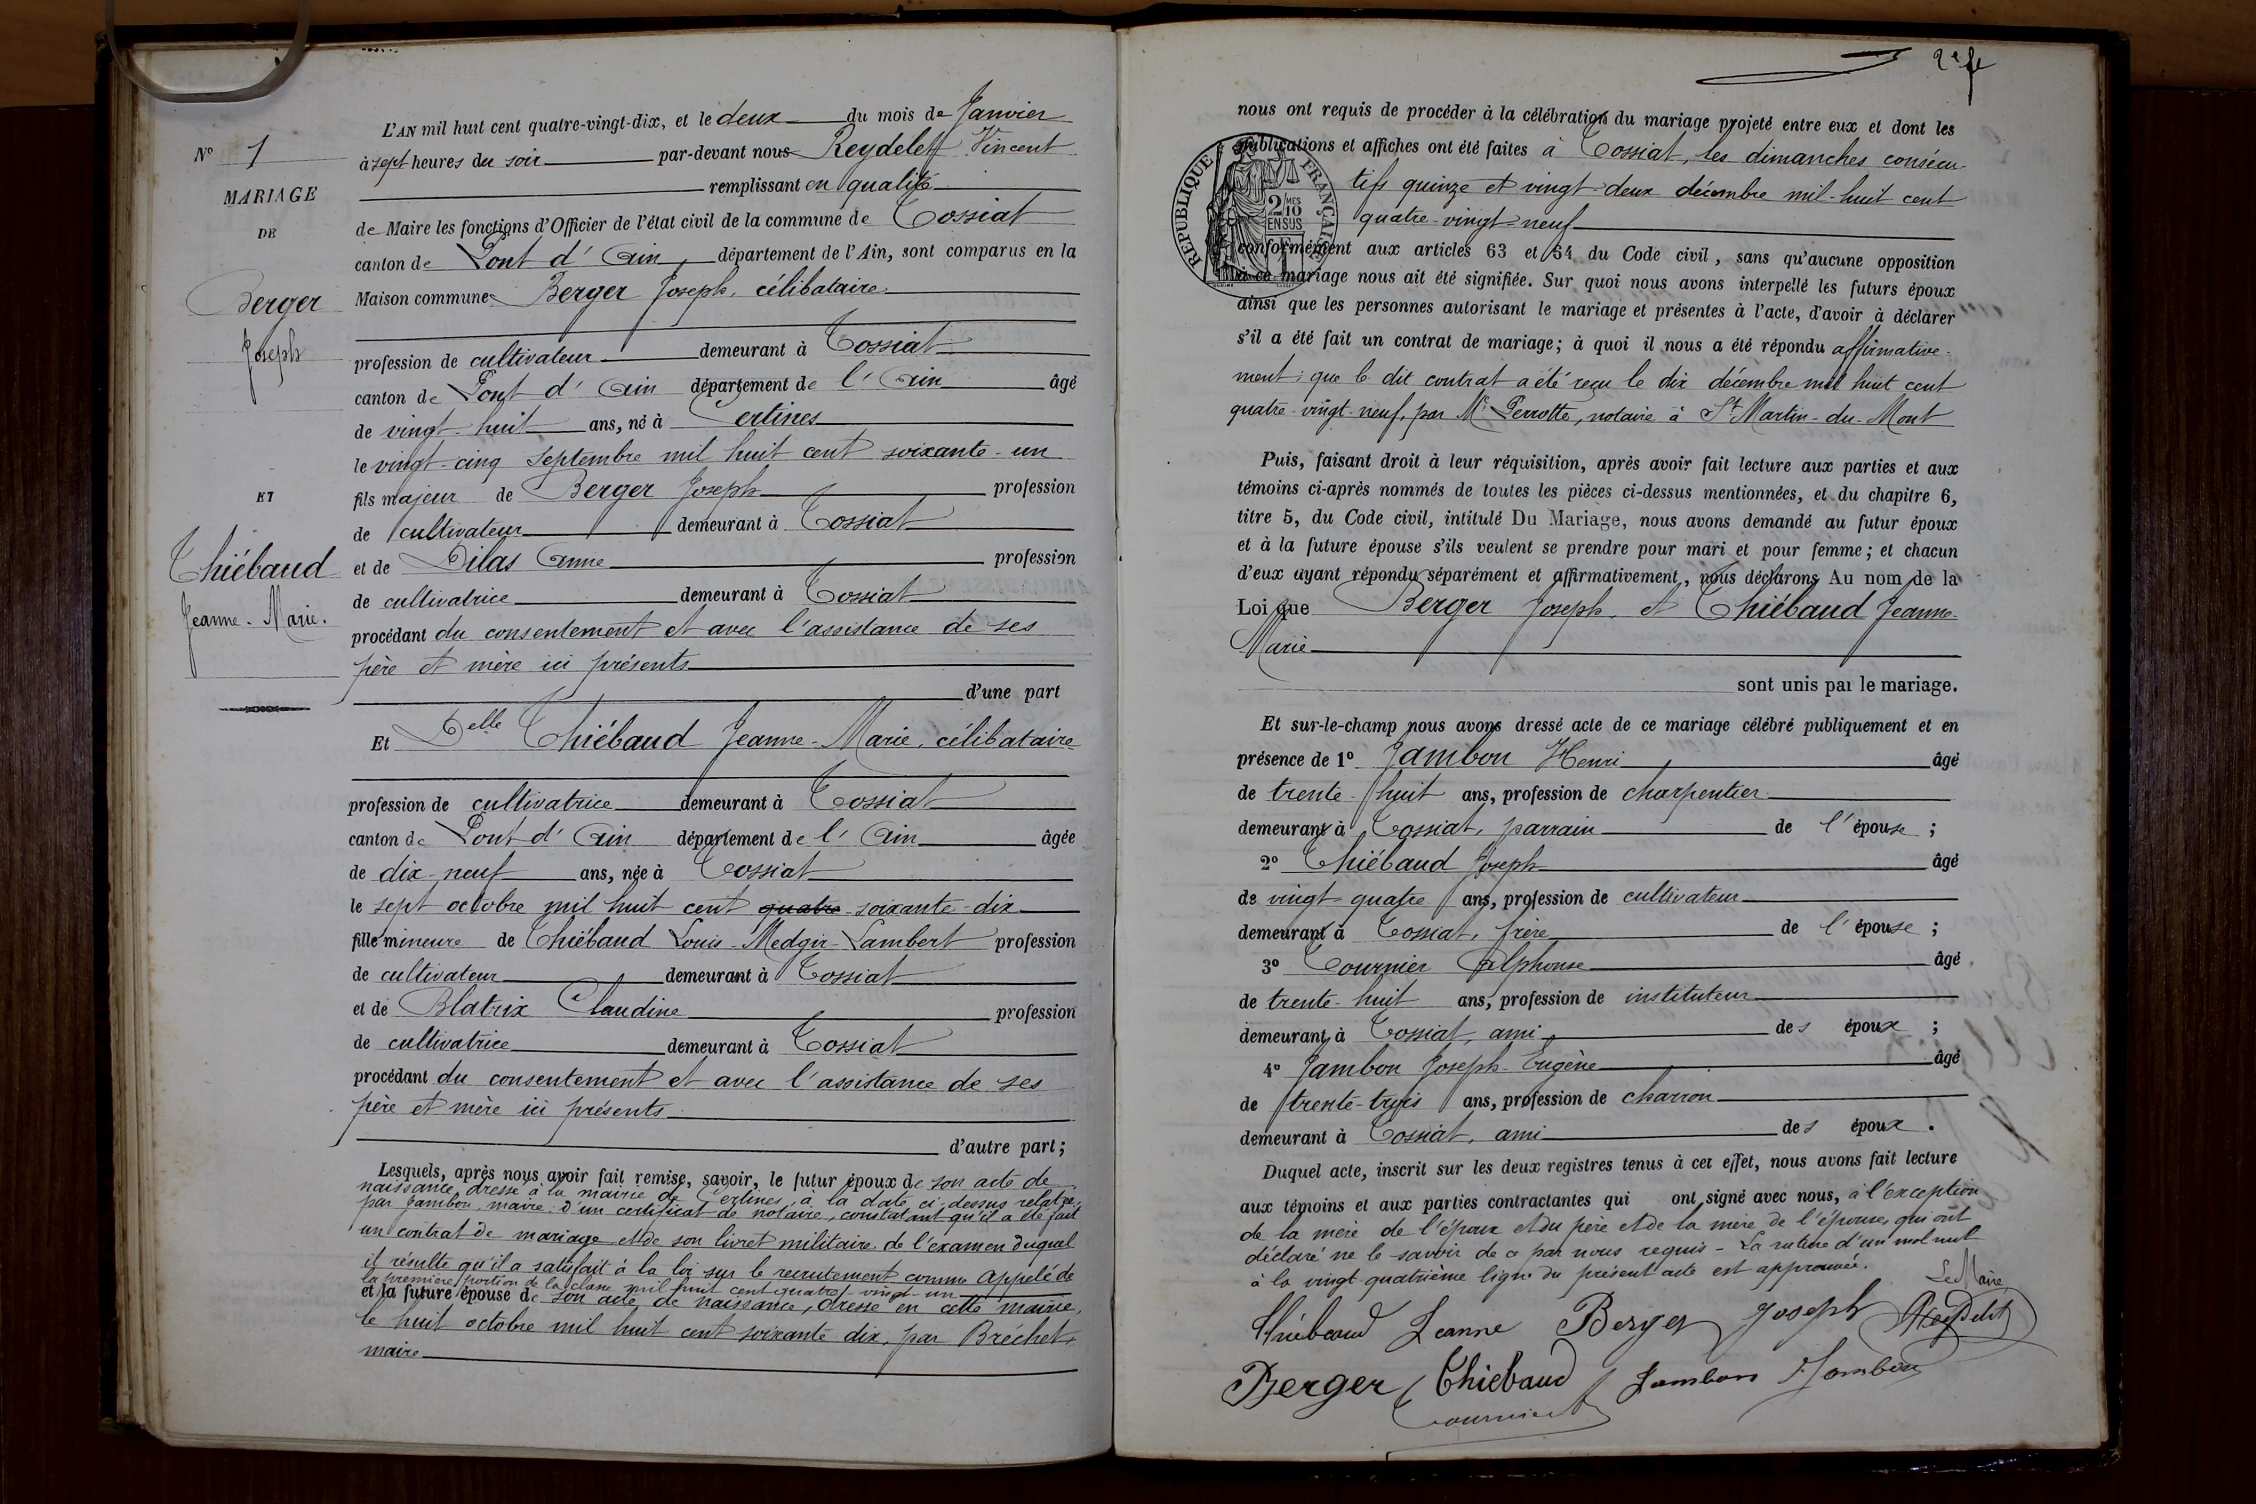 N° 1
MARIAGE
DE
Berger
Joseph
ET
Thiébaud
Jeanne-Marie.
L'AN mil huit cent quatre-vingt-dix, et le deux du mois de Janvier
à sept heures du soir par-devant nous Reydelet Vincent
remplissant en qualité
de Maire les fonctions d'Officier de l'état civil de la commune de Tossiat
canton de Pont d'Ain, département de l'Ain, sont comparus en la
Maison commune Berger Joseph, célibataire
profession de cultivateur demeurant à Tossiat
canton de Pont d'Ain département de l'Ain âgé
de vingt-huit ans, né à Certines
le vingt-cinq septembre mil huit cent soixante-un
fils majeur de Berger Joseph profession
de cultivateur demeurant à Tossiat
et de Dilas Anne profession
de cultivatrice demeurant à Tossiat
procédant du consentement et avec l'assistance de ses
père et mère ici présents
d'une part
Et Delle Thiébaud Jeanne-Marie, célibataire
profession de cultivatrice demeurant à Tossiat
canton de Pont d'Ain département de l'Ain âgée
de dix-neuf ans, née à Tossiat
le sept octobre mil huit cent quatre soixante-dix
fille mineure de Thiébaud Louis-Medgir-Lambert profession
de cultivateur demeurant à Tossiat
et de Blatrix Claudine profession
de cultivatrice demeurant à Tossiat
procédant du consentement et avec l'assistance de ses
père et mère ici présents
d'autre part;
Lesquels, après nous avoir fait remise, savoir, le futur époux de son acte de
naissance dressé à la mairie de Certines, à la date ci-dessus relatée,
par Jambon, maire. D'un certificat de notaire, constatant qu'il a été fait
un contrat de mariage et de son livret militaire de l'examen duquel
il résulte qu'il a satisfait à la loi sur le recrutement comme appelé de
la première portion de la classe mil huit cent quatre-vingt-un
et la future épouse de son acte de naissance, dressé en cette mairie,
le huit octobre mil huit cent soixante dix, par Bréchet,
maire
2e f
nous ont requis de procéder à la célébration du mariage projeté entre eux et dont les
publications et affiches ont été faites à Tossiat, les dimanches consécu-
tifs quinze et vingt-deux décembre mil-huit cent
quatre-vingt-neuf
RÉPUBLIQUE FRANÇAISE
2/10MES
EN SUS
conformément aux articles 63 et 64 du Code civil, sans qu'aucune opposition
à ce mariage nous ait été signifiée. Sur quoi nous avons interpellé les futurs époux
ainsi que les personnes autorisant le mariage et présentes à l'acte, d'avoir à déclarer
s'il a été fait un contrat de mariage; à quoi il nous a été répondu affirmative-
ment; que le dit contrat a été reçu le dix décembre mil huit cent
quatre-vingt-neuf, par Me Perrotte, notaire à St Martin-du-Mont
Puis, faisant droit à leur réquisition, après avoir fait lecture aux parties et aux
témoins ci-après nommés de toutes les pièces ci-dessus mentionnées, et du chapitre 6,
titre 5, du Code civil, intitulé Du Mariage, nous avons demandé au futur époux
et à la future épouse s'ils veulent se prendre pour mari et pour femme; et chacun
d'eux ayant répondu séparément et affirmativement, nous déclarons Au nom de la
Loi que Berger Joseph, et Thiébaud Jeanne-
Marie
sont unis par le mariage.
Et sur-le-champ nous avons dressé acte de ce mariage célébré publiquement et en
présence de 1° Jambon Henri âgé
de trente-huit ans, profession de charpentier
demeurant à Tossiat, parrain de l'épouse;
2° Thiébaud Joseph âgé
de vingt-quatre ans, profession de cultivateur
demeurant à Tossiat, frère de l'épouse;
3° Tournier Alphonse âgé
de trente-huit ans, profession de instituteur
demeurant à Tossiat, ami des époux;
4° Jambon Joseph-Eugène âgé
de trente-trois ans, profession de charron
demeurant à Tossiat, ami des époux.
Duquel acte, inscrit sur les deux registres tenus à cet effet, nous avons fait lecture
aux témoins et aux parties contractantes qui ont signé avec nous, à l'exception
de la mère de l'époux et du père et de la mère de l'épouse, qui ont
déclaré ne le savoir de ce par nous requis - La rature d'un mot nul
à la vingt quatrième ligne du présent acte est approuvée.
Le Maire
Thiébaud Jeanne Berger Joseph Reydelet
Berger Thiébaud Jambon Jambon
Tournier